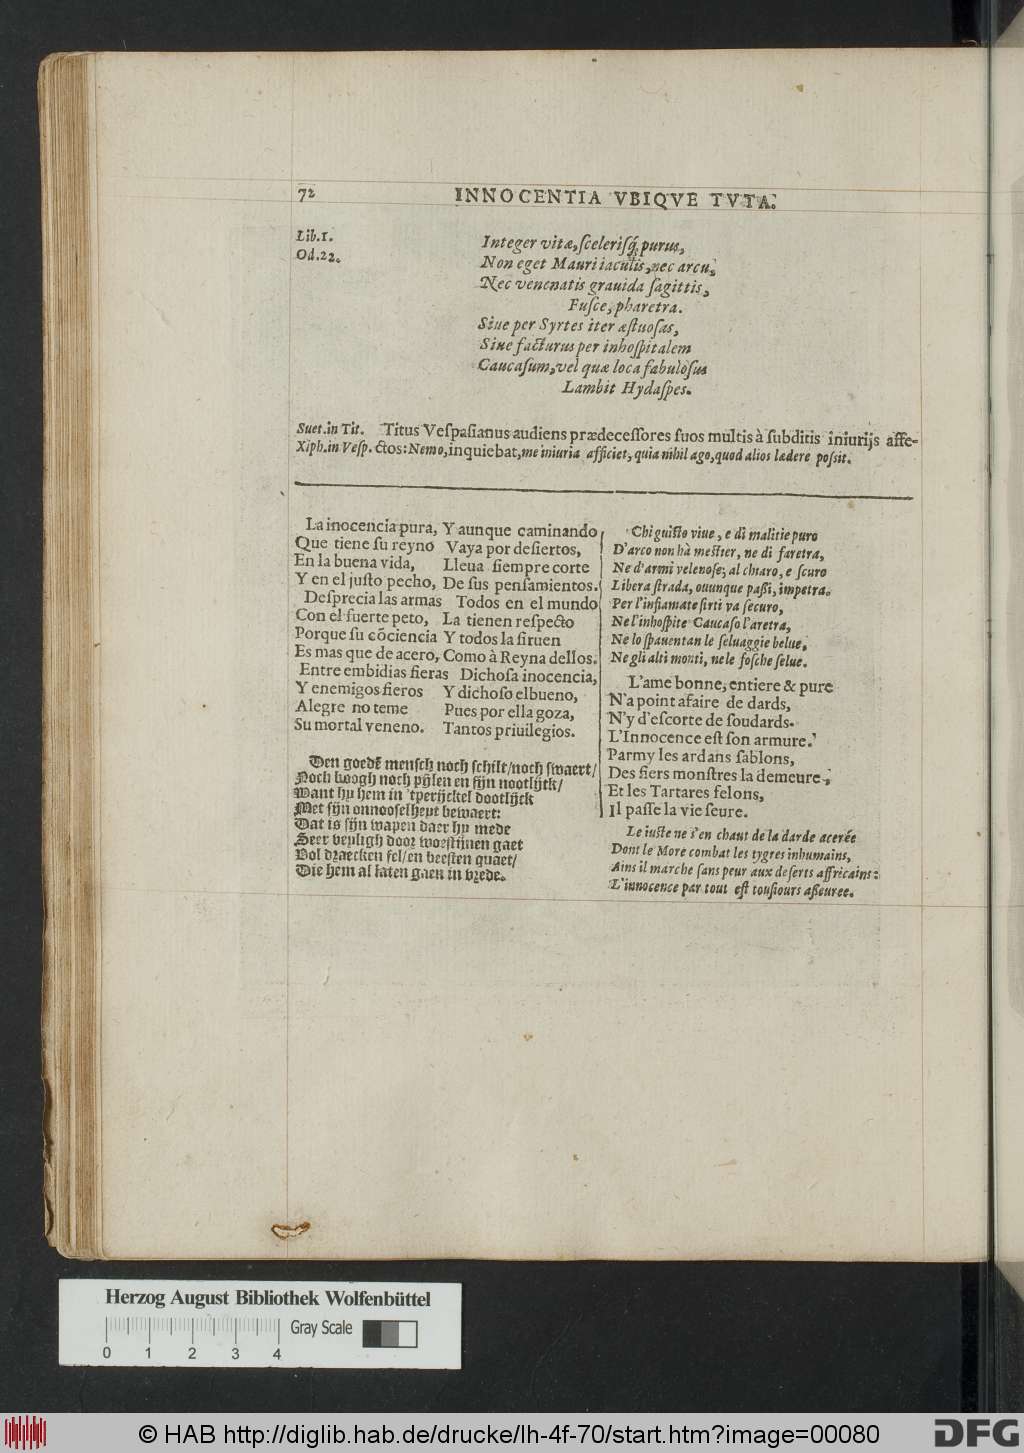 72 INNOCENTIA VBIQVE TVTA.
Lib.1.
Od.22.
Integer vitæ, ſceleriſq́; purus,
Non eget Mauri iaculis, nec arcu,
Nec venenatis grauida ſagittis,
Fuſce, pharetra.
Siue per Syrtes iter æſtuoſas,
Siue facturus per inhoſpitalem
Caucaſum, vel quæ loca fabuloſus
Lambit Hydaſpes.
Suet. in Tit. Titus Veſpaſianus audiens prædeceſſores ſuos multis à ſubditis iniurijs affe-
Xiph. in Veſp. ctos: Nemo, inquiebat, me iniuria afficiet, quia nihil ago, quod alios lædere poſsit.
La inocencia pura,
Que tiene ſu reyno
En la buena vida,
Y en el juſto pecho,
Deſprecia las armas
Con el fuerte peto,
Porque ſu cõciencia
Es mas que de acero,
Entre embidias fieras
Y enemigos fieros
Alegre no teme
Su mortal veneno.
Y aunque caminando
Vaya por deſiertos,
Lleua ſiempre corte
De ſus penſamientos.
Todos en el mundo
La tienen reſpecto
Y todos la ſiruen
Como à Reyna dellos.
Dichoſa inocencia,
Y dichoſo el bueno,
Pues por ella goza,
Tantos priuilegios.
Den goedẽ menſch noch ſchilt/noch ſwaert/
Noch boogh noch pÿlen en ſÿn nootlÿck/
Want hy hem in 'tperÿckel dootlÿck
Met ſÿn onnooſelheyt bewaert:
Dat is ſÿn wapen daer hy mede
Seer veyligh door woeſtijnen gaet
Vol draecken fel/en beeſten quaet/
Die hem al laten gaen in vrede.
Chi giuſto viue, e di malitie puro
D'arco non hà meſtier, ne di faretra,
Ne d'armi velenoſe; al chiaro, e ſcuro
Libera ſtrada, ouunque paßi, impetra.
Per l'infiamate ſirti va ſecuro,
Ne l'inhoſpite Caucaſo l'aretra,
Ne lo ſpauentan le ſeluaggie belue,
Ne gli alti monti, ne le foſche ſelue.
L'ame bonne, entiere & pure
N'a point afaire de dards,
N'y d'eſcorte de ſoudards.
L'Innocence eſt ſon armure.
Parmy les ardans ſablons,
Des fiers monſtres la demeure,
Et les Tartares felons,
Il paſſe la vie ſeure.
Le iuſte ne s'en chaut de la darde acerée
Dont le More combat les tygres inhumains,
Ains il marche ſans peur aux deſerts affricains:
L'innocence par tout eſt touſiours aßeuree.
Herzog August Bibliothek Wolfenbüttel
Gray Scale
0 1 2 3 4
© HAB http://diglib.hab.de/drucke/lh-4f-70/start.htm?image=00080
DFG